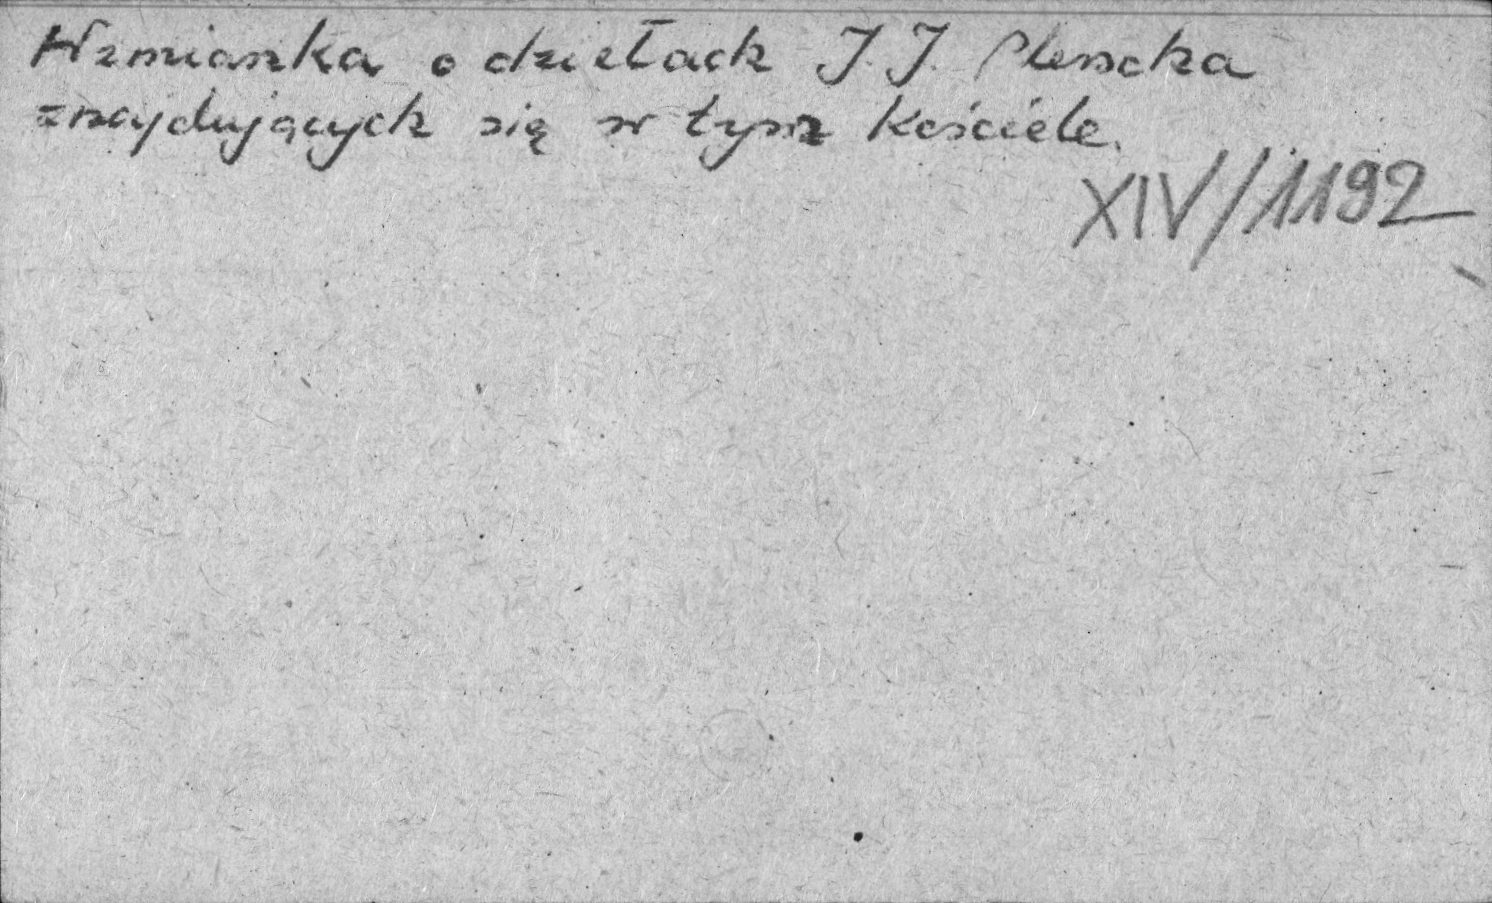 Wzmianka o dziełach J. J. Plerscha
znajdujących się w tym kościele.
XIV/1192